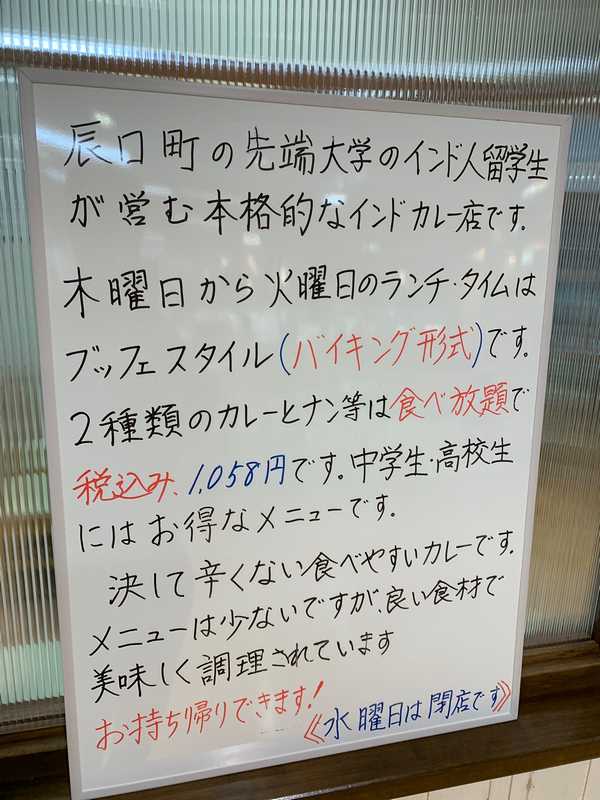 辰口町の先端大学のインド人留学生
が営む本格的なインドカレー店です。
木曜日から火曜日のランチ・タイムは
ブッフェスタイル(バイキング形式)です。
2種類のカレーとナン等は食べ放題で
税込み、1,058円です。中学生・高校生
にはお得なメニューです。
決して辛くない食べやすいカレーです。
メニューは少ないですが、良い食材で
美味しく調理されています
お持ち帰りできます!
《水曜日は閉店です》